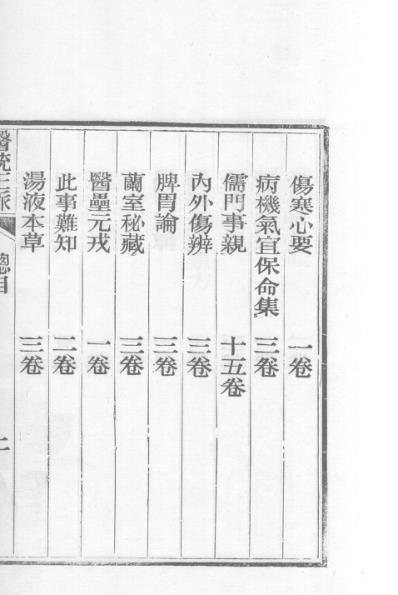 傷寒心要 一卷
病機氣宜保命集 三卷
儒門事親 十五卷
內外傷辨 三卷
脾胃論 三卷
蘭室秘藏 三卷
醫壘元戎 一卷
此事難知 二卷
湯液本草 三卷
醫統正脈 總目 二